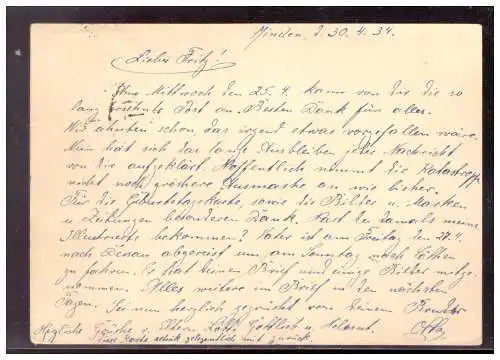 Minden, d. 30. 4. 34.
Lieber Fritz!
Am Mittwoch den 25. 4. kam von Dir die so
lang ersehnte Post an. Besten Dank für alles.
Wir ahnten schon, das irgend etwas vorgefallen wäre.
Nun hat sich das lange Ausbleiben jeder Nachricht
von Dir aufgeklärt. Hoffentlich nimmt die Katastrophe
nicht noch grössere Ausmasse an wie bisher.
Für die Geburtstagskarte, sowie die Bilder u. Marken
u. Zeitungen besonderen Dank. Hast Du damals meine
Illustrierte bekommen? Vater ist am Freitag den 27.4.
nach Dessau abgereist um am Sonntag nach Cöthen
zu fahren. Er hat Deinen Brief und einige Bilder mitge-
nommen. Alles weitere im Brief in den nächsten
Tagen. Sei nun herzlich gegrüsst von Deinem Bruder
Herzliche Grüsse v. Eltern, Gottlieb u. Helmut.
Diese Karte schick gelegentlich mit zurück.